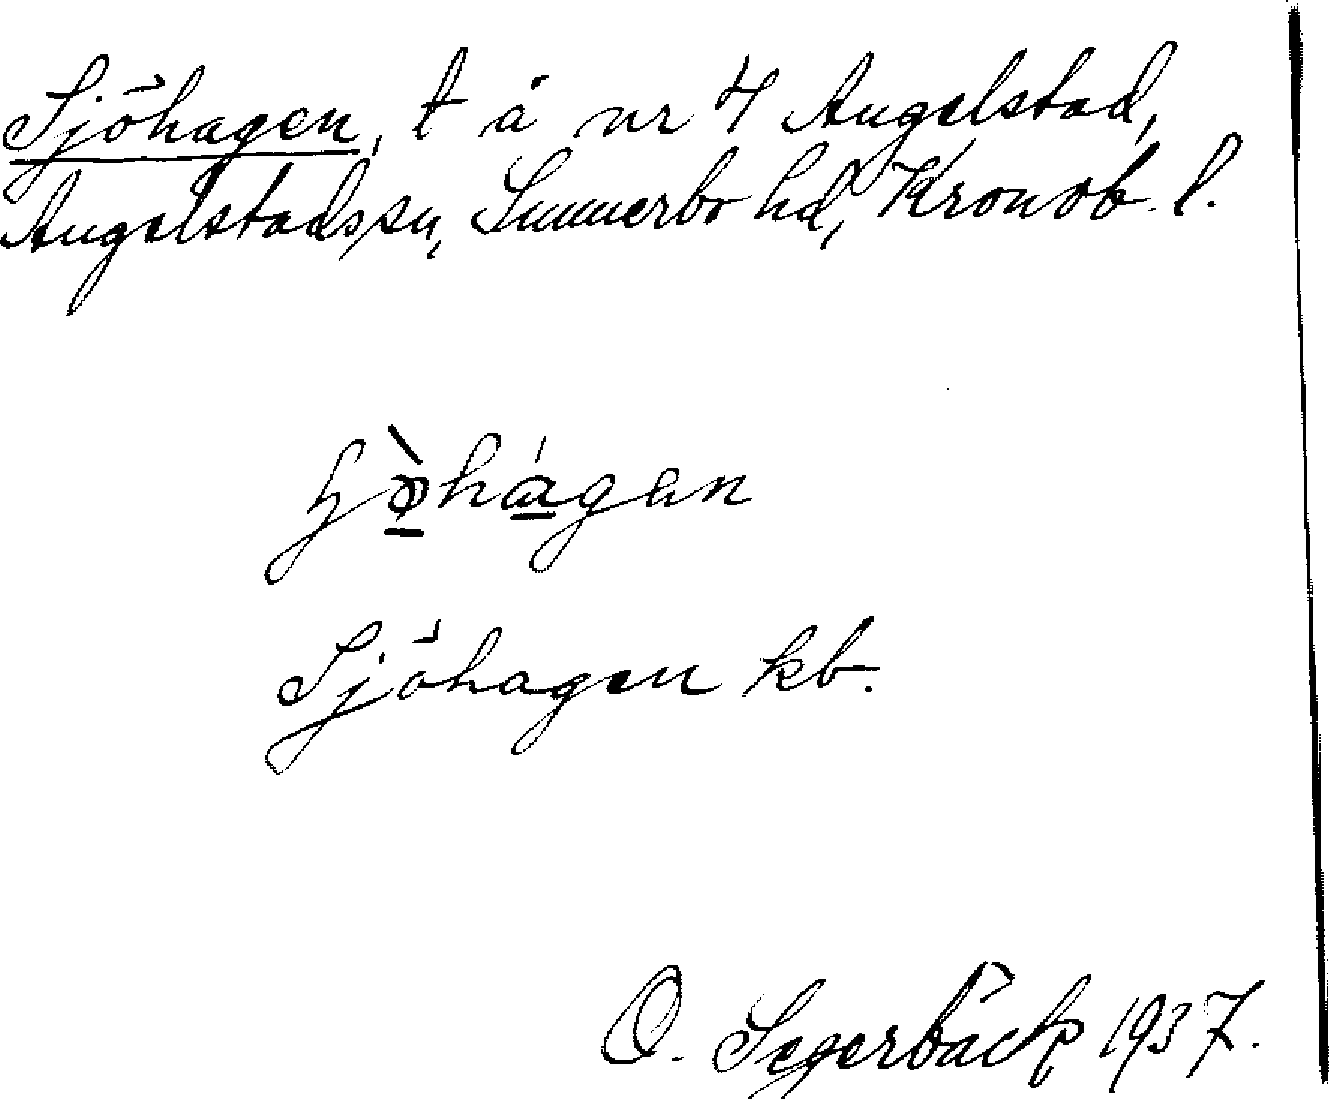 Sjöhagen, t å nr 4 Angelstad,
Angelstads sn, Sunnerbo hd, Kronob. l.
Sjöhagen kb.
O. Segerbäck 1937.